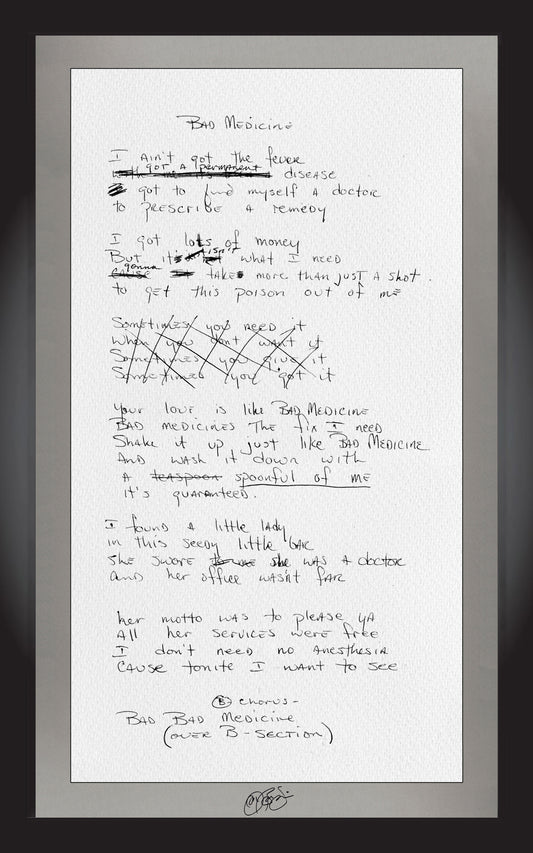 BAD MEDICINE
I AIN'T got the fever
got A permanent
disease
got to find myself A doctor
to PRESCRIBE A remedy
I got lots of money
But it's isn't what I NEED
gonna
take more than just A shot.
to get this poison out of me
Sometimes you need it
When you don't want it
Sometimes you give it
Sometimes you got it
Your love is like BAD MEDICINE
BAD MEDICINE'S The fix I NEED
Shake it up just like BAD MEDICINE
AND WASH it down with
A teaspoon spoonful of ME
it's guaranteed.
I found A little lady
in this seedy little bar
She swore she was A doctor
and her office wasn't far
her motto was to please ya
All her services were free
I don't need no Anesthesia
Cause tonite I want to see
B chorus-
BAD BAD MEDICINE
(over B-SECTION)